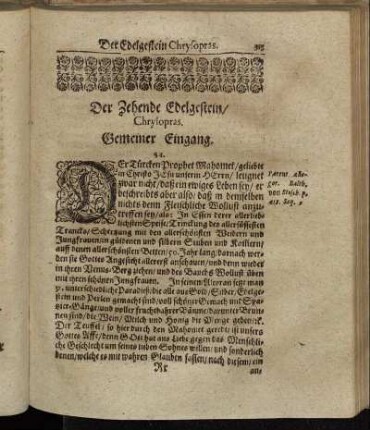 Der Edelgestein Chrysopras. 313
Der Zehende Edelgestein/
Chrysopras.
Gemeiner Eingang.
54.
DEr Türcken Prophet Mahomet/ geliebte
in Christo JEsu unserm HErrn/ leugnet
zwar nicht/ daß ein ewiges Leben sey/ er
beschreibts aber also/ daß in demselben
nichts denn Fleischliche Wollust anzu-
treffen sey/ als: In Essen derer allerlieb-
lichsten Speise/ Trinckung des allersüssesten
Trancks/ Schertzung mit den allerschönsten Weibern und
Jungfrauen in güldenen und silbern Stuben und Kollern/
auff denen allerschönsten Betten/ 50. Jahr lang/ darnach wer-
den sie Gottes Angesicht allererst anschauen/ und denn wieder
in ihren Venus-Berg ziehen/ und des Bauchs Wollust üben
mit ihren schönen Jungfrauen. In seinem Alcoran setzt man
unterschiedliche Paradis/ die alle aus Gold/ Silber/ Edelge-
stein und Perlen gemacht sind/ voll schöne Gemach mit Spa-
tzier-Gänge/ und voller fruchtbahrer Bäume/ darunter Brun-
nen sind/ die Wein/ Milch und Honig die Menge geben/ ꝛc.
Der Teuffel/ so hier durch den Mahomet geredt/ ist unsers
Gottes Affe/ denn GOtt hat aus Liebe gegen das Menschli-
che Geschlecht um seines lieben Sohnes willen/ und sonderlich
denen/ welche es mit wahren Glauben fassen/ nach diesem/ ein
Rr